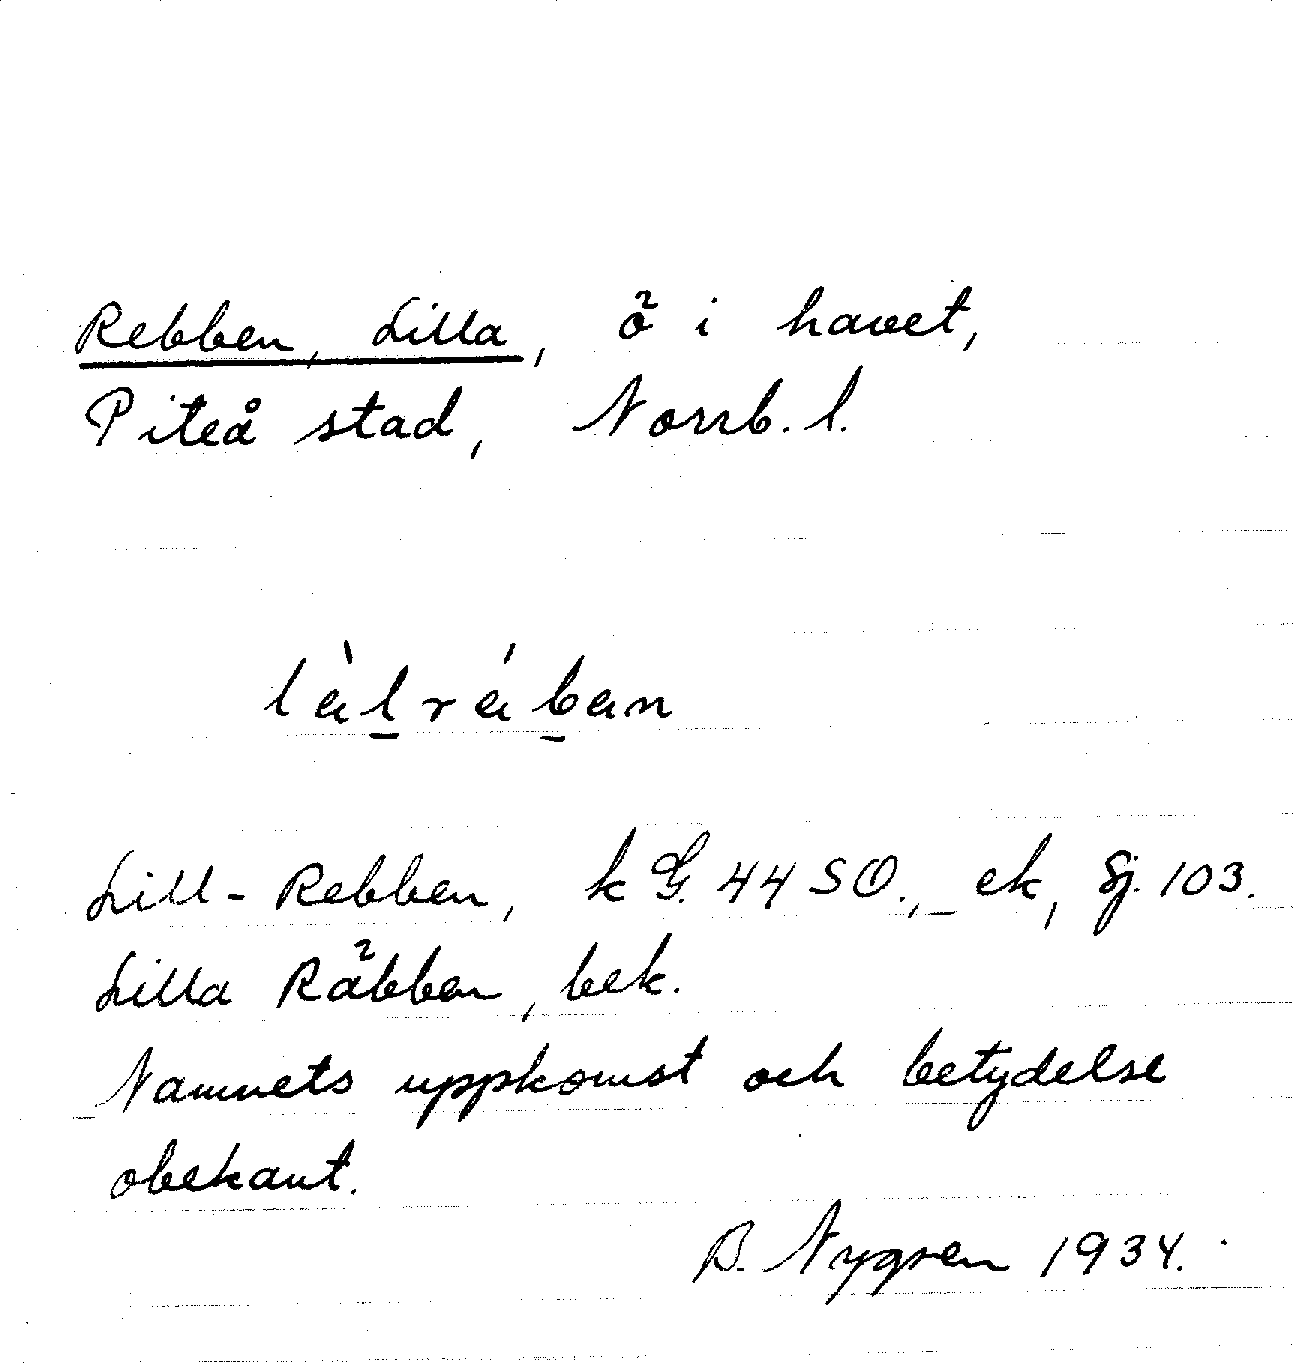 Rebben, Lilla, ö i havet,
Piteå stad, Norrb. l.
lälräban
Lill-Rebben, k G. 44 SO., ek, Sj. 103.
Lilla Räbben, bek.
Namnets uppkomst och betydelse
obekant.
B. Nygren 1934.